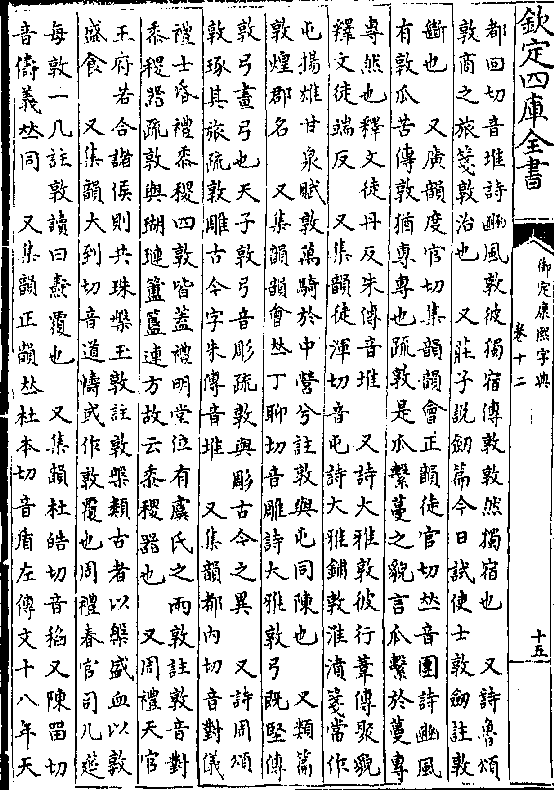 欽定四庫全書
御定康熙字典
卷十二
十五
都回切音堆詩豳風敦彼獨宿傳敦敦然獨宿也　又詩魯頌
敦商之旅箋敦治也　又莊子說劒篇今日試使士敦劒註敦
斷也　又廣韻度官切集韻韻會正韻徒官切𠀤音團詩豳風
有敦瓜苦傳敦猶專專也疏敦是瓜繫蔓之貌言瓜繫於蔓專
專然也釋文徒丹反朱傳音堆　又詩大雅敦彼行葦傳聚貌
釋文徒端反　又集韻徒渾切音屯詩大雅鋪敦淮濆箋當作
屯揚雄甘泉賦敦萬騎於中營兮註敦與屯同陳也　又類篇
敦煌郡名　又集韻韻會𠀤丁聊切音雕詩大雅敦弓旣堅傳
敦弓畫弓也天子敦弓音彫疏敦與彫古今之異　又詩周頌
敦琢其旅疏敦雕古今字朱傳音堆　又集韻都內切音對儀
禮士昏禮黍稷四敦皆蓋禮明堂位有虞氏之兩敦註敦音對
黍稷器疏敦與瑚璉簠簋連方故云黍稷器也　又周禮天官
玉府若合諸侯則共珠槃玉敦註敦槃類古者以槃盛血以敦
盛食　又集韻大到切音道燾或作敦覆也周禮春官司几筵
每敦一几註敦讀曰燾覆也　又集韻杜皓切音稻又陳畱切
音儔義𠀤同　又集韻正韻𠀤杜本切音盾左傳文十八年天